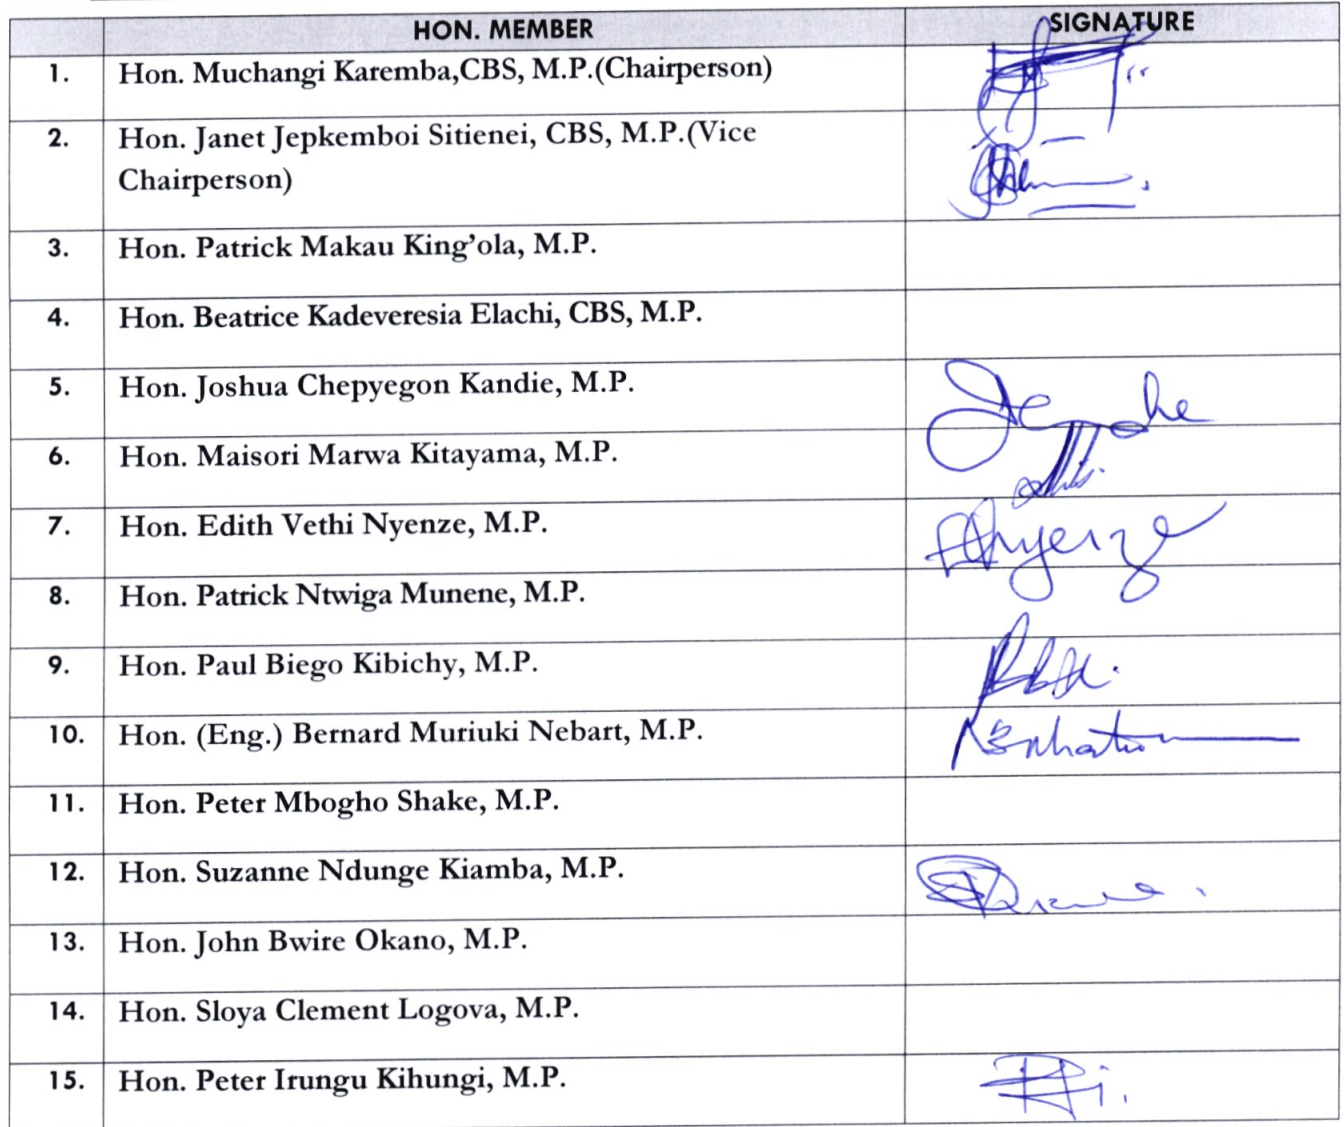 HON. MEMBER SIGNATURE
1. Hon. Muchangi Karemba,CBS, M.P.(Chairperson)
2. Hon. Janet Jepkemboi Sitienei, CBS, M.P.(Vice
Chairperson)
3. Hon. Patrick Makau King’ola, M.P.
4. Hon. Beatrice Kadeveresia Elachi, CBS, M.P.
5. Hon. Joshua Chepyegon Kandie, M.P.
6. Hon. Maisori Marwa Kitayama, M.P.
7. Hon. Edith Vethi Nyenze, M.P.
8. Hon. Patrick Ntwiga Munene, M.P.
9. Hon. Paul Biego Kibichy, M.P.
10. Hon. (Eng.) Bernard Muriuki Nebart, M.P.
11. Hon. Peter Mbogho Shake, M.P.
12. Hon. Suzanne Ndunge Kiamba, M.P.
13. Hon. John Bwire Okano, M.P.
14. Hon. Sloya Clement Logova, M.P.
15. Hon. Peter Irungu Kihungi, M.P.